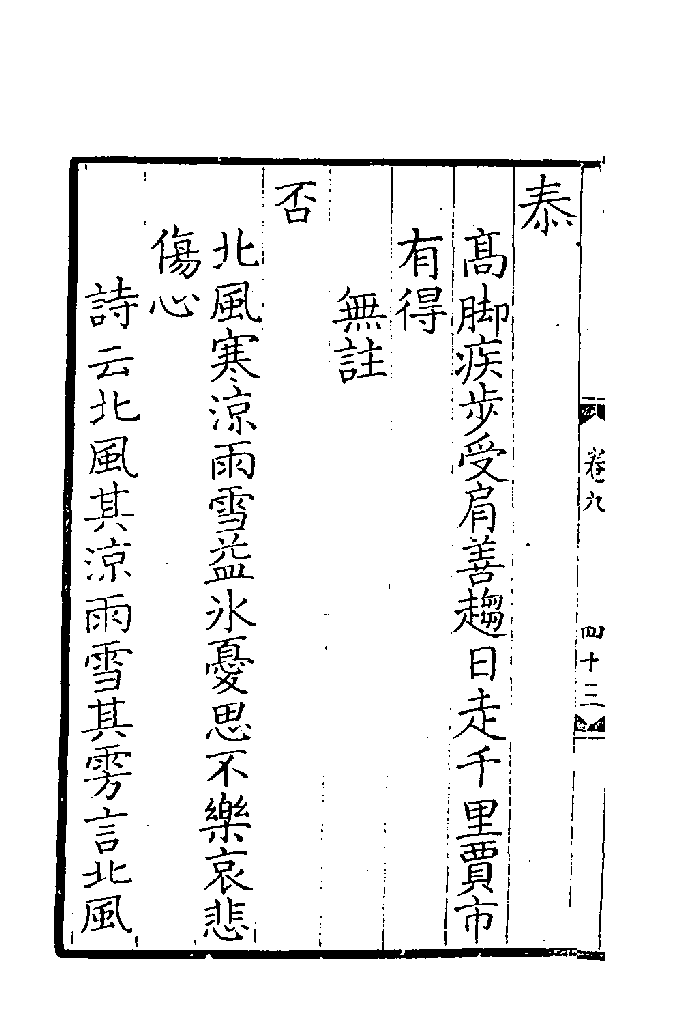 卷九
四十三
泰
髙脚疾步受肩善趨日走千里賈市
有得
無註
否
北風寒涼雨雪益氷憂思不樂哀悲
傷心
詩云北風其涼雨雪其雱言北風